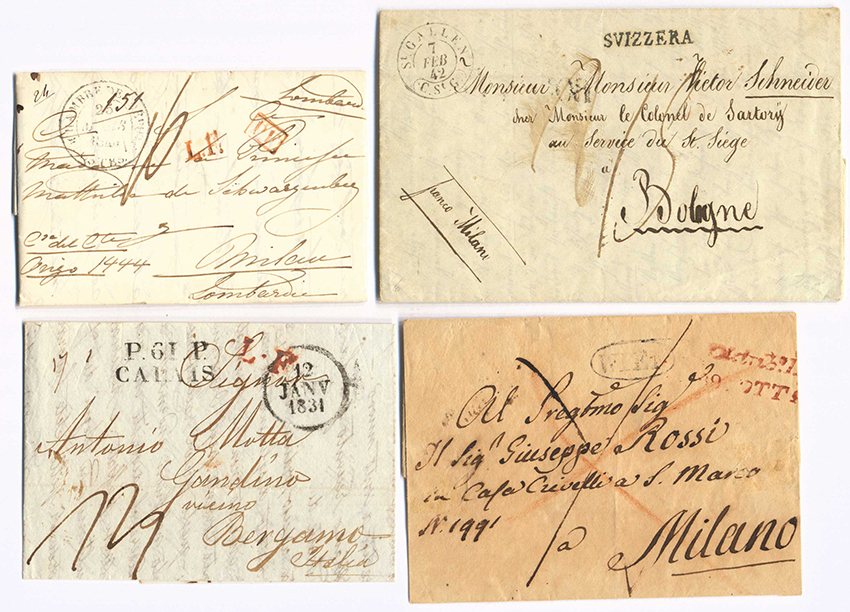 24
CHAMBRE DES
1.51
Lombard
16
L.P.
PD
Madame Princesse
Mathilde de Schwarzenberg
Ca del Cte
Origo 1444 Milan
Lombardie
ST GALLEN
7
FEB
42
SVIZZERA
Monsieur Monsieur Victor Schneider
chez Monsieur le Colonel de Sartory
au Service du St. Siège
à
Bologne
franco Milano
P.61.P.
CALAIS
L.P.
12
JANV
1831
Signor
Antonio Motta
Gandino
vicino
Bergamo
Italia
Al Pregmo Sigr
Il Sigr Giuseppe Rossi
in Casa Crivelli a S. Marco
No 1991
a
Milano